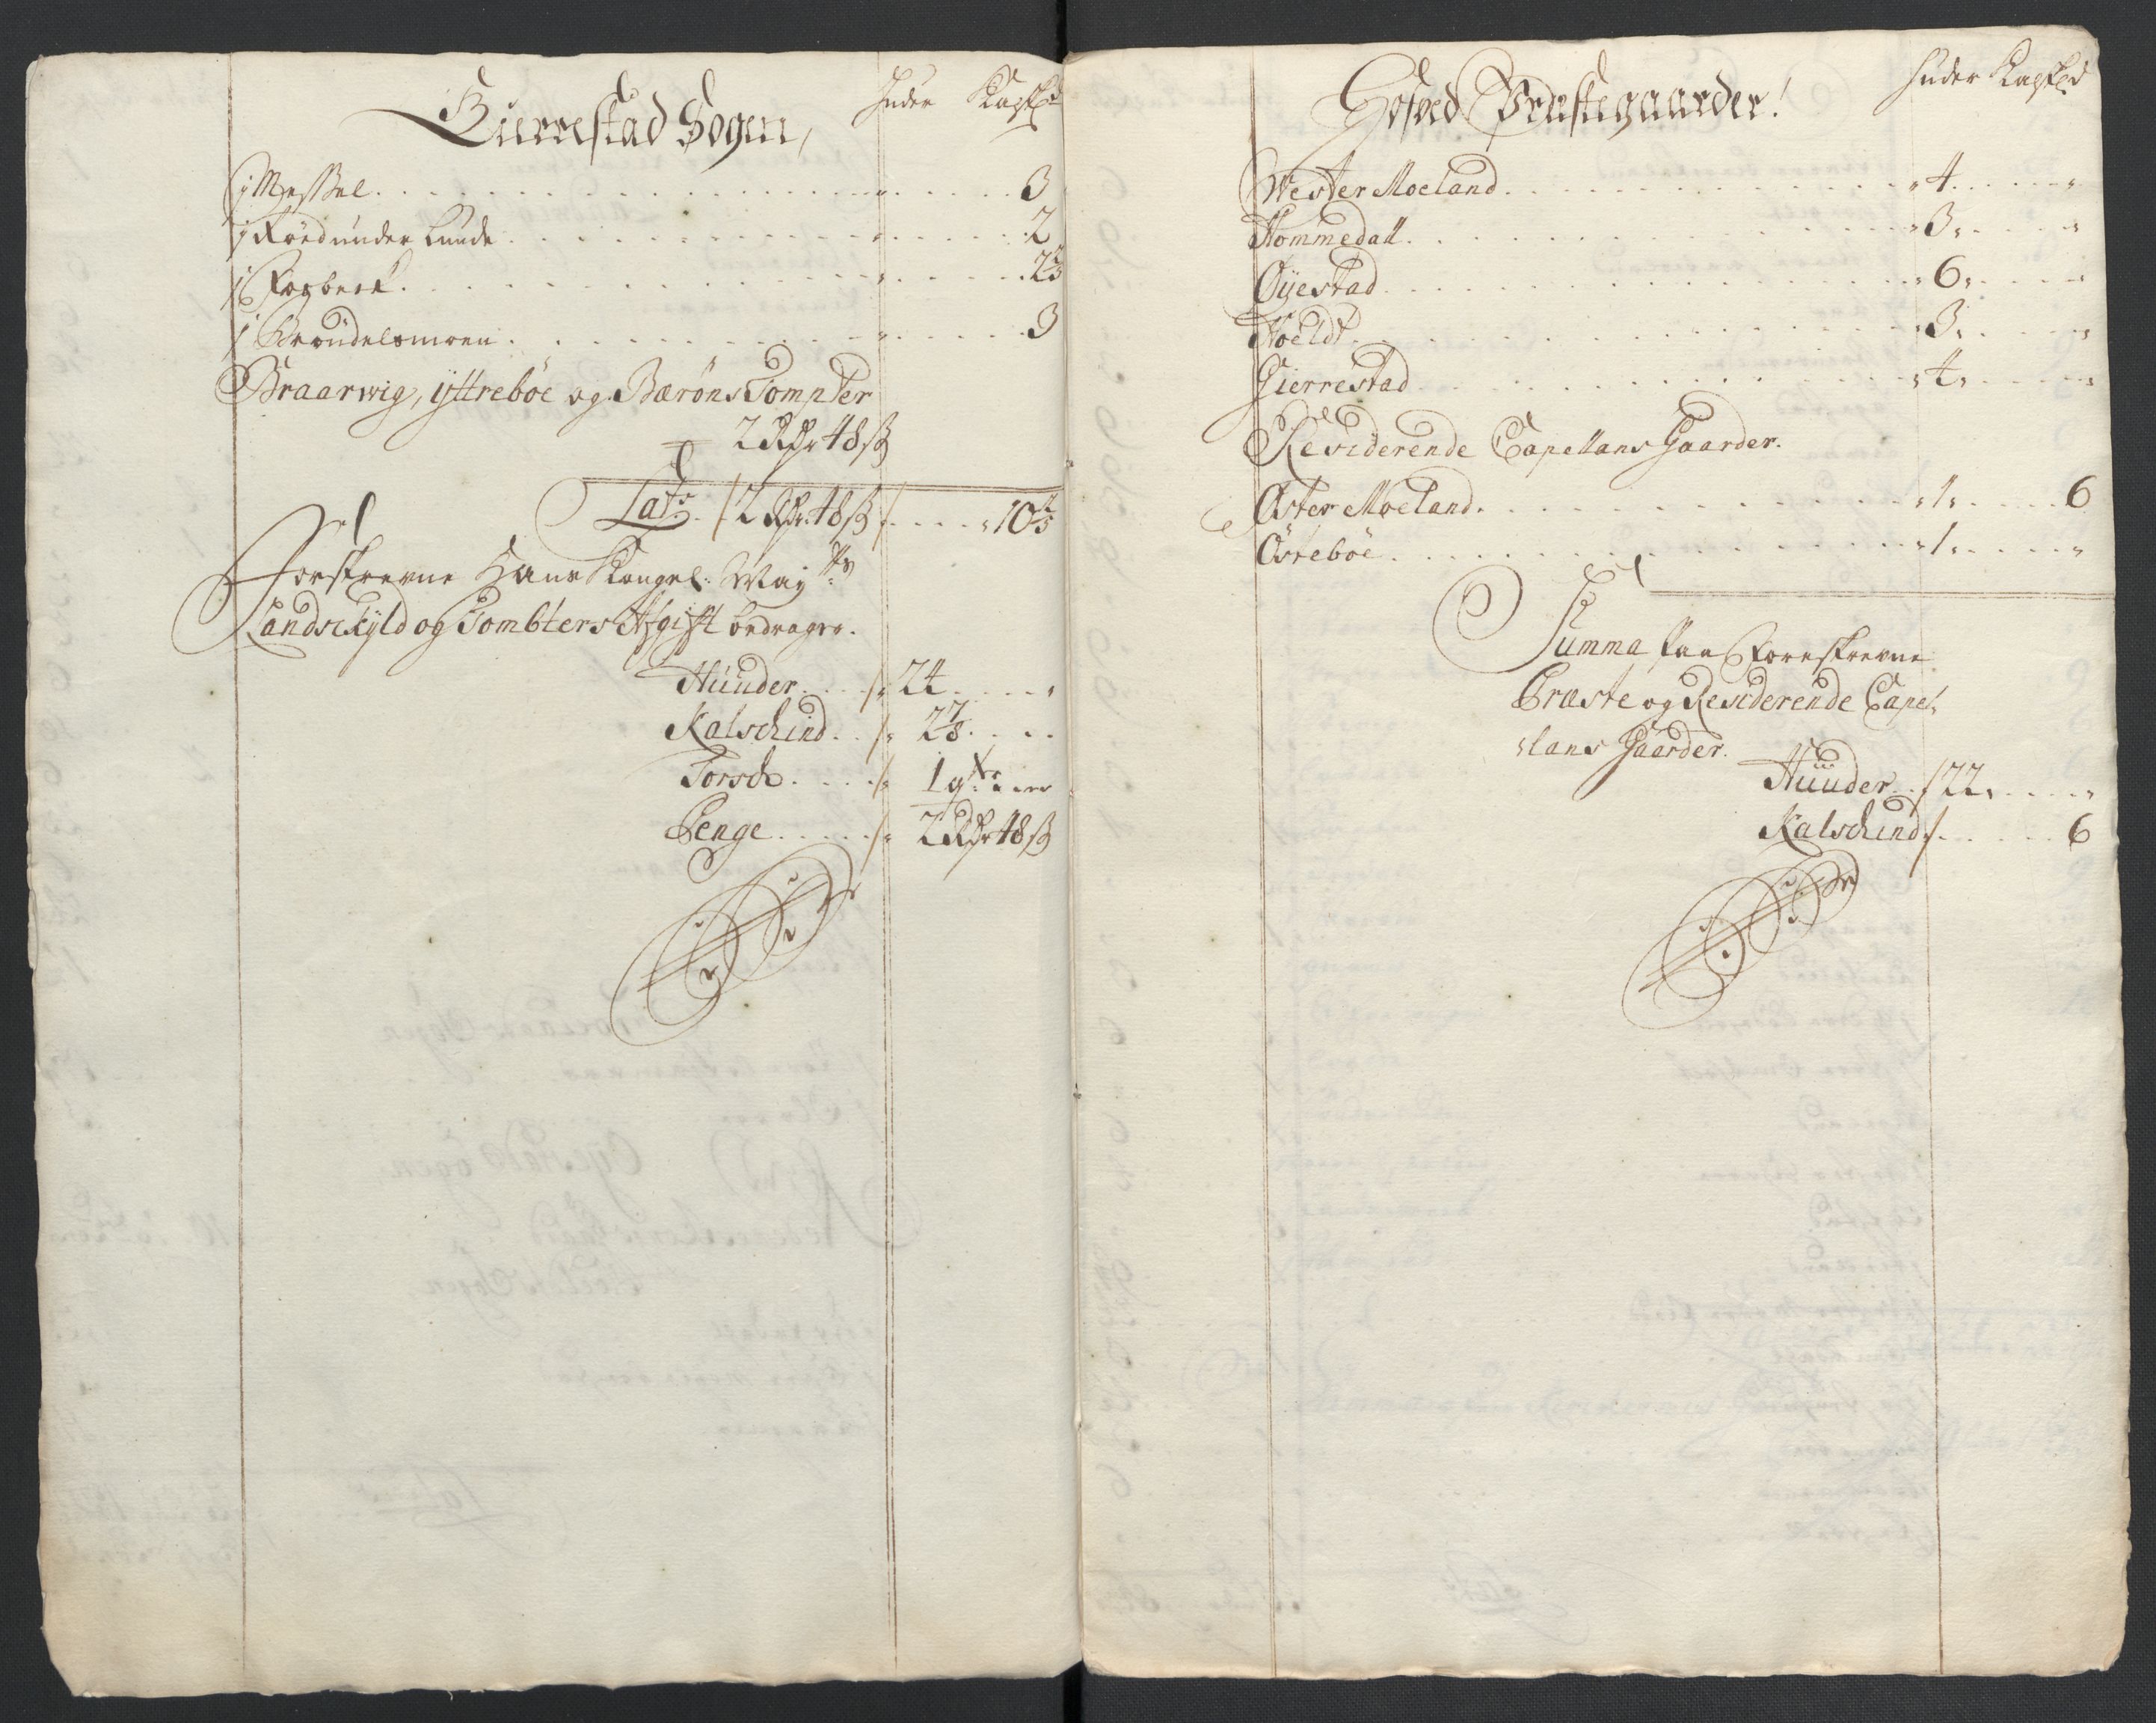 Gierrestad Sogen, Huder Kalfsk:
j Messel 3
j Røed under Lunde 2
j 2 2/3
j Brøndelsmoen 3
Braarwig, Ÿttrebøe og Bærøns Tompter
2 Rdr 48 ß
Lat: 2 Rdr 48 ß 10 2/3
Forskrevne Hans Kongel: Maÿtts
Landschÿld og Tombters Afgifft bedrager.
Huuder 24
Kalschind 27
Torsch 1 qtr
Penge 2 Rdr 48 ß
Præstegaarder! Huder Kalfsk:
Wester Moeland 4
Hommedall 3
Øÿestad 6
Hoeldt 3
Gierrestad 4
Residerende Capellans Gaarder.
Øster Moeland 1 6
Østebøe 1
Summa paa Foreskrevne
Præste og Residerende Capel-
lans Gaarder.
Huuder 22
Kalschind 6